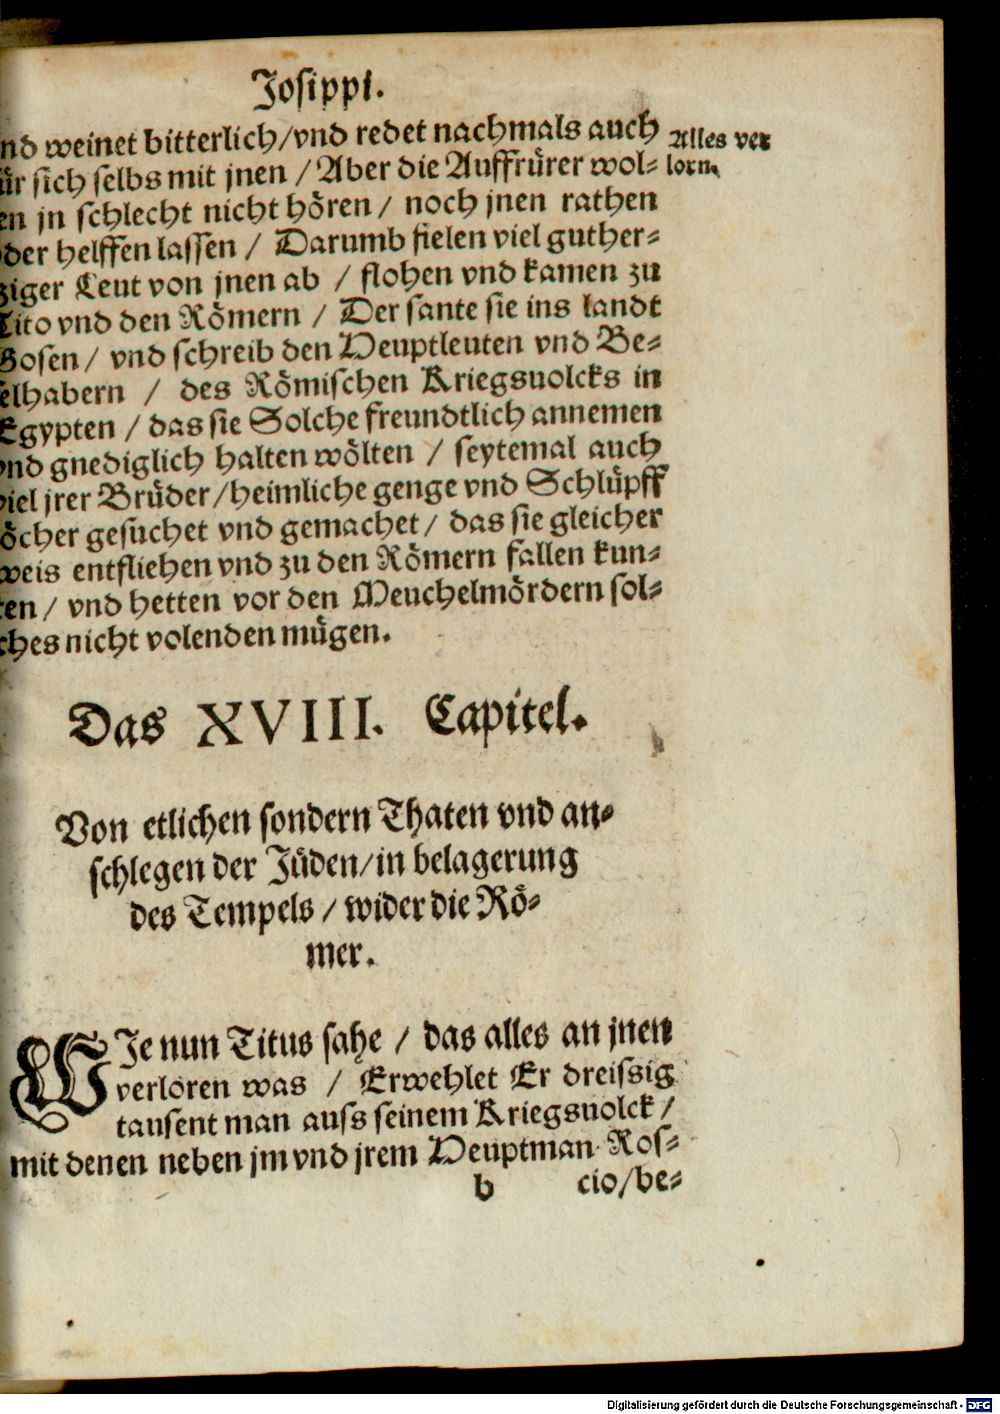 Josippi.
nd weinet bitterlich/vnd redet nachmals auch
ür sich selbs mit jnen / Aber die Auffrürer wol-
en jn schlecht nicht hören / noch jnen rathen
der helffen lassen / Darumb fielen viel guther-
ziger Leut von jnen ab / flohen vnd kamen zu
Tito vnd den Römern / Der sante sie ins landt
Gosen / vnd schreib den Heuptleuten vnd Be-
elhabern / des Römischen Kriegsuolcks in
Egypten / das sie Solche freundtlich annemen
vnd gnediglich halten wölten / seytemal auch
viel jrer Brüder/heimliche genge vnd Schlüpff
öcher gesuchet vnd gemachet / das sie gleicher
weis entfliehen vnd zu den Römern fallen kun-
ten / vnd hetten vor den Meuchelmördern sol-
ches nicht volenden mügen.
Alles ver
lorn.
Das XVIII. Capitel.
Von etlichen sondern Thaten vnd an-
schlegen der Jüden/in belagerung
des Tempels / wider die Rö-
mer.
WJe nun Titus sahe / das alles an jnen
verloren was / Erwehlet Er dreissig
tausent man auss seinem Kriegsuolck /
mit denen neben jm vnd jrem Heuptman Ros-
b cio/be-
Digitalisierung gefördert durch die Deutsche Forschungsgemeinschaft - DFG